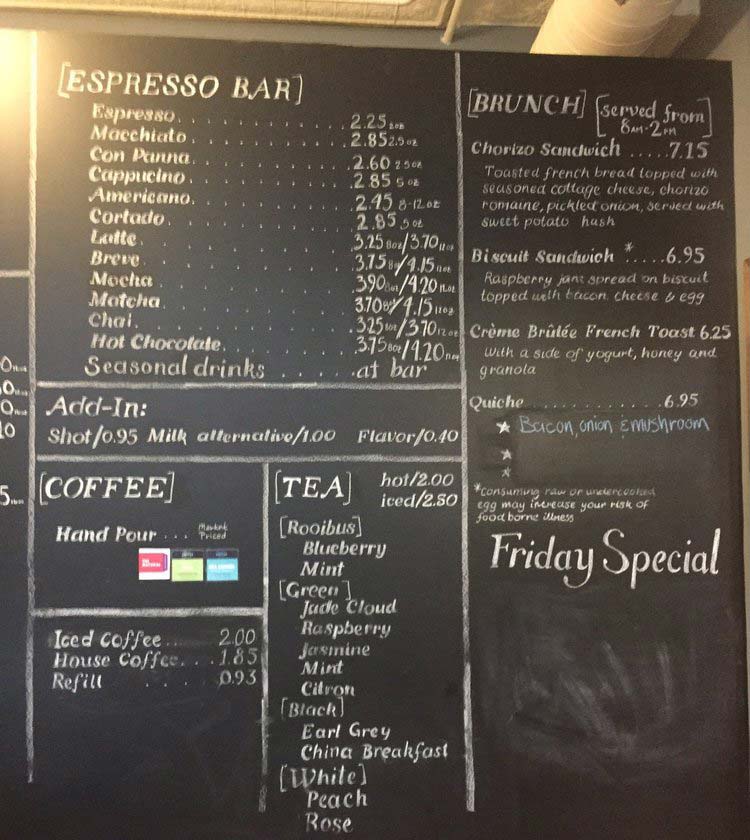 [ESPRESSO BAR]
Espresso. . . . . . . . . . 2.25 2oz
Macchiato. . . . . . . . . . 2.85 2.5oz
Con Panna. . . . . . . . . . 2.60 2.5oz
Cappucino. . . . . . . . . . 2.85 5oz
Americano. . . . . . . . . . 2.45 8-12oz
Cortado. . . . . . . . . . 2.85 5oz
Latte. . . . . . . . . . 3.25 8oz/3.70 12oz
Breve. . . . . . . . . . 3.75 8oz/4.15 12oz
Mocha. . . . . . . . . . 3.90 8oz/4.20 12oz
Matcha. . . . . . . . . . 3.70 8oz/4.15 12oz
Chai. . . . . . . . . . 3.25 8oz/3.70 12oz
Hot Chocolate. . . . . . . . . 3.75 8oz/4.20 12oz
Seasonal drinks . . . . . at bar
Add-In:
Shot/0.95 Milk alternative/1.00 Flavor/0.40
[COFFEE]
Hand Pour . . . Market Priced
Iced Coffee . . . 2.00
House Coffee. . . 1.85
Refill . . . . 0.93
[TEA] hot/2.00
iced/2.50
[Rooibus]
Blueberry
Mint
[Green]
Jade Cloud
Raspberry
Jasmine
Mint
Citron
[Black]
Earl Grey
China Breakfast
[White]
Peach
Rose
[BRUNCH] [served from
8AM-2PM]
Chorizo Sandwich .....7.15
Toasted french bread topped with
seasoned cottage cheese, chorizo
romaine, pickled onion, served with
sweet potato hash
Biscuit Sandwich *.....6.95
Raspberry jam spread on biscuit
topped with bacon cheese & egg
Crème Brûlée French Toast 6.25
With a side of yogurt, honey and
granola
Quiche . . . . . . . . . . 6.95
★ Bacon, onion & mushroom
★
★
*Consuming raw or undercooked
egg may increase your risk of
food borne illness
Friday Special